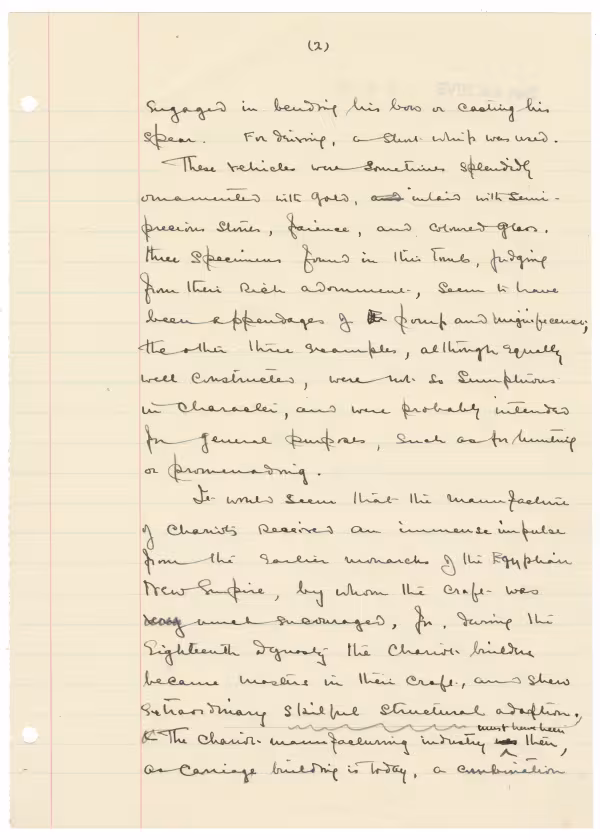 (2)
engaged in bending his bow or casting his
spear. For driving, a short whip was used.
These vehicles were sometimes splendidly
ornamented with gold, and inlaid with semi-
precious stones, faience, and coloured glass.
three specimens found in this tomb, judging
from their rich adornment, seem to have
been appendages of pomp and magnificence;
the other three examples, although equally
well constructed, were not so sumptuous
in character, and were probably intended
for general purposes, such as for hunting
or promenading.
It would seem that the manufacture
of chariots received an immense impulse
from the earlier monarchs of the Egyptian
New Empire, by whom the craft was
much encouraged, for, during the
Eighteenth Dynasty the chariot builders
became masters in their craft, and show
extraordinary skilful structural adaption.
must have been
The chariot manufacturing industry was then,
as carriage building is today, a combination